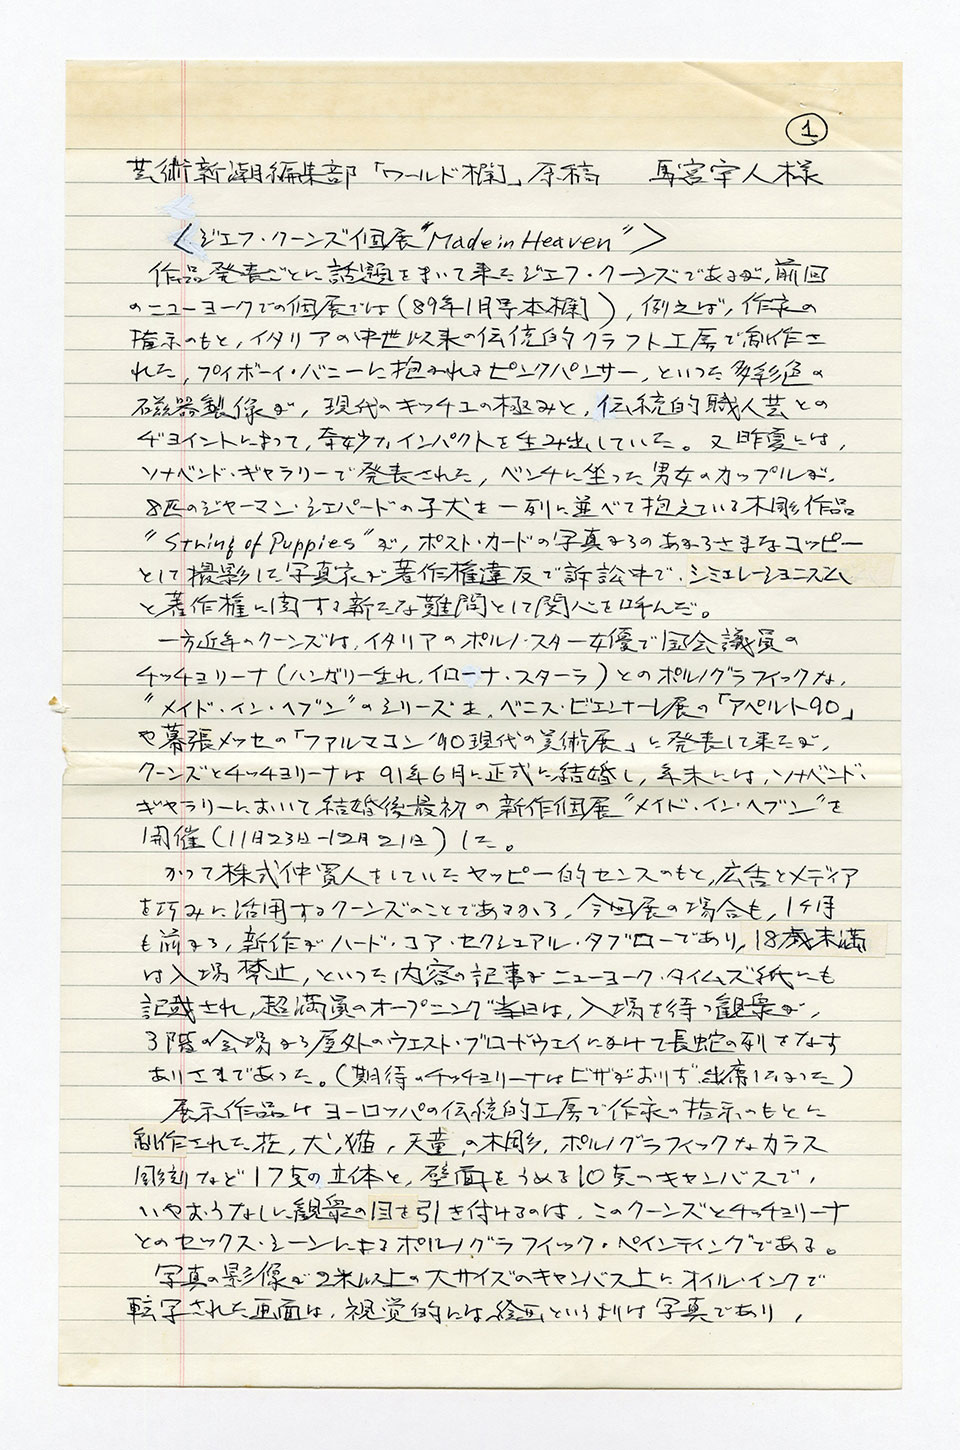 1
芸術新潮編集部「ワールド欄」原稿 馬宮宇人様
〈ジェフ・クーンズ個展"Made in Heaven"〉
作品発表ごとに話題をまいて来たジェフ・クーンズであるが、前回
のニューヨークでの個展では(89年1月号本欄)、例えば、作家の
指示のもと、イタリアの中世以来の伝統的クラフト工房で制作さ
れた、プレイボーイ・バニーに抱かれるピンクパンサー、といった多彩色の
磁器製像が、現代のキッチュの極みと、伝統的職人芸との
ヂョイントによって、奇妙なインパクトを生み出していた。又昨夏には、
ソナベンド・ギャラリーで発表された、ベンチに坐った男女のカップルが、
8匹のジャーマン・シェパードの子犬を一列に並べて抱えている木彫作品
"String of Puppies"が、ポスト・カードの写真からのあからさまなコッピー
として撮影した写真家が著作権違反で訴訟中で、シミュレーショニズム
と著作権に関する新たな難問として関心を呼んだ。
一方近年のクーンズは、イタリアのポルノ・スター女優で国会議員の
チッチョリーナ(ハンガリー生れ、イローナ・スターラ)とのポルノグラフィックな、
"メイド・イン・ヘブン"のシリーズを、ベニス・ビエンナーレ展の「アペルト90」
や幕張メッセの「ファルマコン'90現代の美術展」に発表して来たが、
クーンズとチッチョリーナは91年6月に正式に結婚し、年末には、ソナベンド・
ギャラリーにおいて結婚後最初の新作個展"メイド・イン・ヘブン"を
開催(11月23日-12月21日)した。
かつて株式仲買人をしていたヤッピー的センスのもと、広告とメディア
を巧みに活用するクーンズのことであるから、今回展の場合も、1ケ月
も前から、新作がハード・コア・セクシュアル・タブローであり、18歳未満
は入場禁止、といった内容の記事がニューヨーク・タイムズ紙にも
記載され、超満員のオープニング当日は、入場を待つ観衆が、
3階の会場から屋外のウエスト・ブロードウェイにかけて長蛇の列をなす
ありさまであった。(期待のチッチョリーナはビザがおりず、出席しなかった)
展示作品はヨーロッパの伝統的工房で作家の指示のもとに
制作された花、犬、猫、天童、の木彫、ポルノグラフィックなガラス
彫刻など17点の立体と、壁面をうめる10点のキャンバスで、
いやおうなしに観衆の目を引き付けるのは、このクーンズとチッチョリーナ
とのセックス・シーンによるポルノグラフィック・ペインティングである。
写真の影像が2米以上の大サイズのキャンバス上にオイル・インクで
転写された画面は、視覚的には絵画というよりは写真であり、